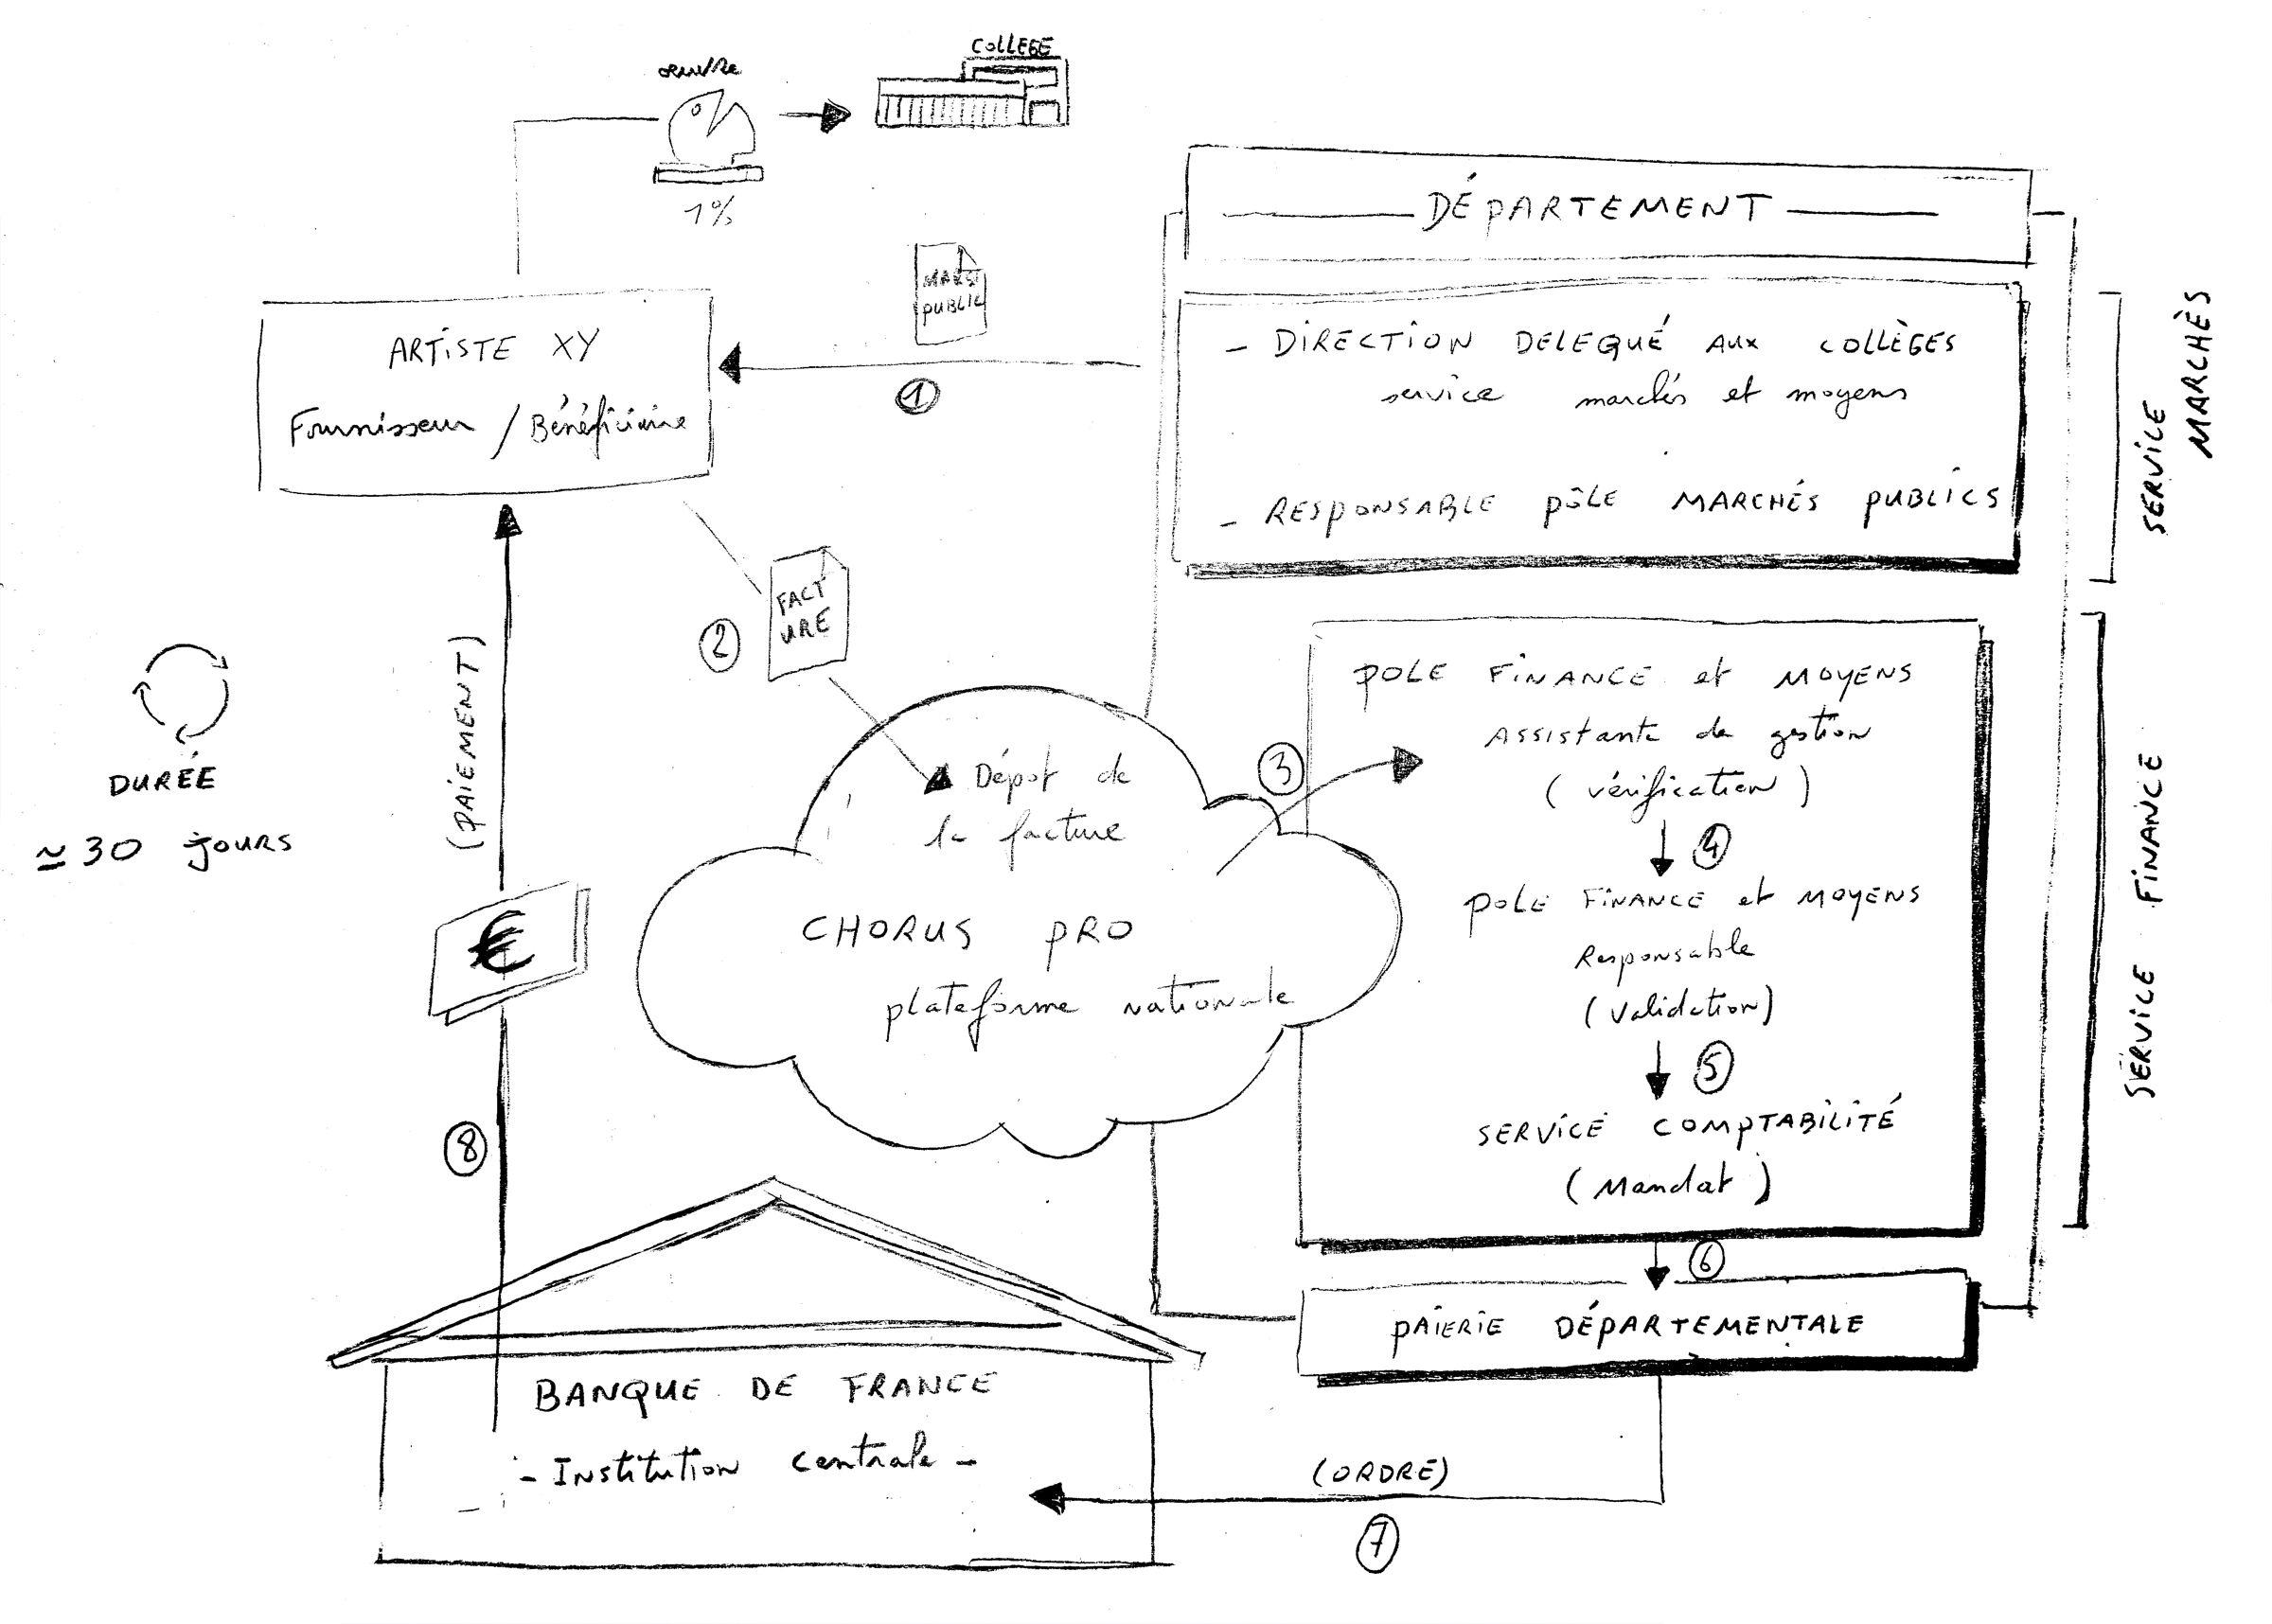 COLLEGE
oeuvre
1%
DÉPARTEMENT
MARCHÈS
SERVICE
PUBLIC
- DIRECTION DELEQUÉ AUX COLLÈGES
service marchés et moyens
- RESPONSABLE PÔLE MARCHÉS PUBLICS
1
ARTISTE XY
Fournisseur / Bénéficiaire
FACT
URE
2
(PAIEMENT)
DURÉE
≃ 30 JOURS
POLE FINANCE et MOYENS
Assistante de gestion
(vérification)
3
4
Dépot de
la facture
CHORUS PRO
plateforme nationale
POLE FINANCE et MOYENS
Responsable
(validation)
5
SERVICE COMPTABILITÉ
(Mandat)
SERVICE FINANCE
€
8
6
PAIERIE DÉPARTEMENTALE
BANQUE DE FRANCE
- Institution centrale -
(ORDRE)
7